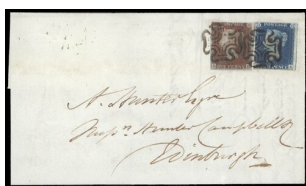 A. Hunter Esqre
Messrs. Hunter Campbell & Co
Edinburgh